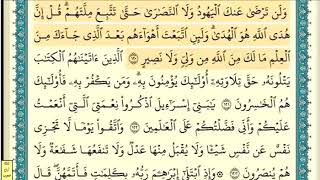 وَلَن تَرْضَىٰ عَنكَ الْيَهُودُ وَلَا النَّصَارَىٰ حَتَّىٰ تَتَّبِعَ مِلَّتَهُمْ ۗ قُلْ إِنَّ
هُدَى اللَّهِ هُوَ الْهُدَىٰ ۗ وَلَئِنِ اتَّبَعْتَ أَهْوَاءَهُم بَعْدَ الَّذِي جَاءَكَ مِنَ
الْعِلْمِ مَا لَكَ مِنَ اللَّهِ مِن وَلِيٍّ وَلَا نَصِيرٍ ١٢٠ الَّذِينَ آتَيْنَاهُمُ الْكِتَابَ
يَتْلُونَهُ حَقَّ تِلَاوَتِهِ أُولَٰئِكَ يُؤْمِنُونَ بِهِ ۗ وَمَن يَكْفُرْ بِهِ فَأُولَٰئِكَ
هُمُ الْخَاسِرُونَ ١٢١ يَا بَنِي إِسْرَائِيلَ اذْكُرُوا نِعْمَتِيَ الَّتِي أَنْعَمْتُ
عَلَيْكُمْ وَأَنِّي فَضَّلْتُكُمْ عَلَى الْعَالَمِينَ ١٢٢ وَاتَّقُوا يَوْمًا لَّا تَجْزِي
نَفْسٌ عَن نَّفْسٍ شَيْئًا وَلَا يُقْبَلُ مِنْهَا عَدْلٌ وَلَا تَنفَعُهَا شَفَاعَةٌ وَلَا
هُمْ يُنصَرُونَ ١٢٣ وَإِذِ ابْتَلَىٰ إِبْرَاهِيمَ رَبُّهُ بِكَلِمَاتٍ فَأَتَمَّهُنَّ ۖ قَالَ